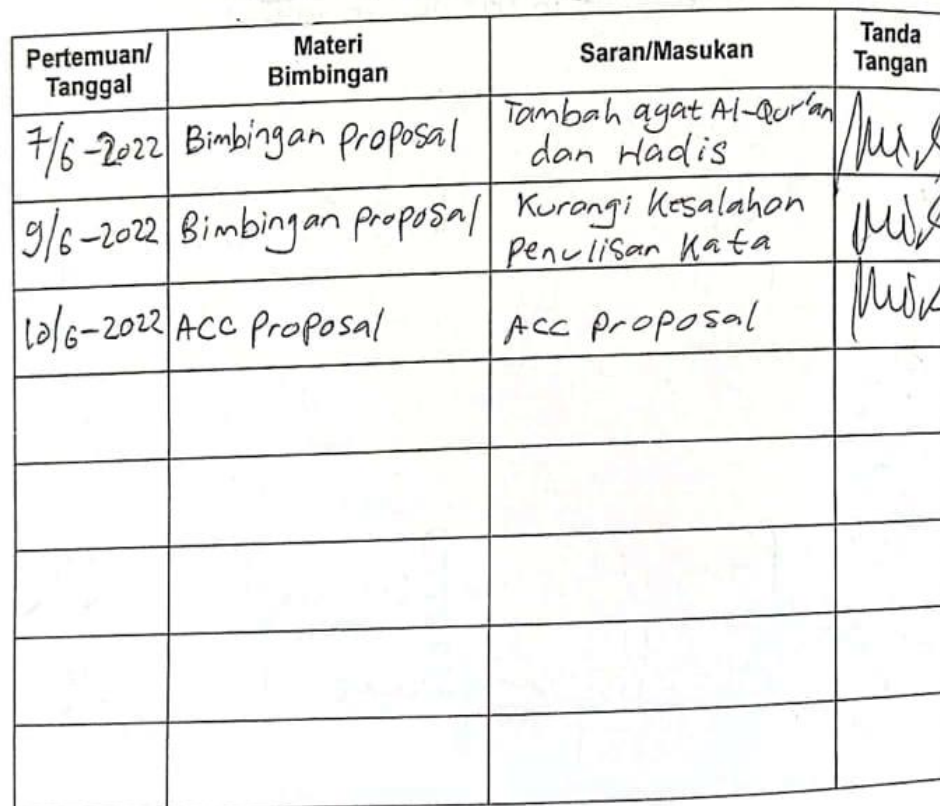 Pertemuan/
Tanggal
Materi
Bimbingan
Saran/Masukan
Tanda
Tangan
7/6-2022
Bimbingan Proposal
Tambah ayat Al-Qur'an
dan Hadis
9/6-2022
Bimbingan Proposal
Kurangi Kesalahan
Penulisan Kata
10/6-2022
ACC Proposal
ACC Proposal